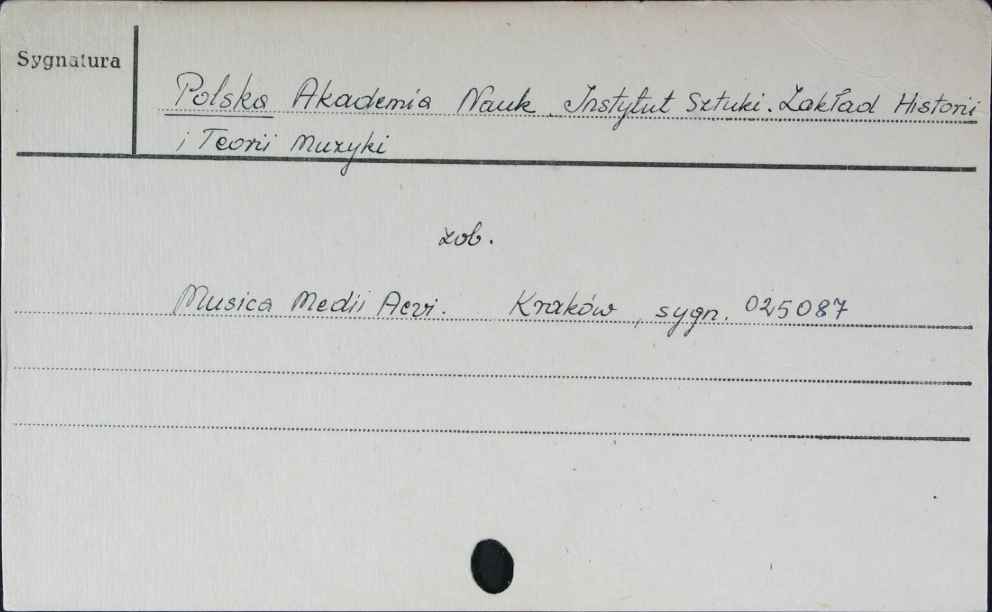 Sygnatura
Polska Akademia Nauk. Instytut Sztuki. Zakład Historii
i Teorii Muzyki
zob.
Musica Medii Aevi. Kraków, sygn. 025087